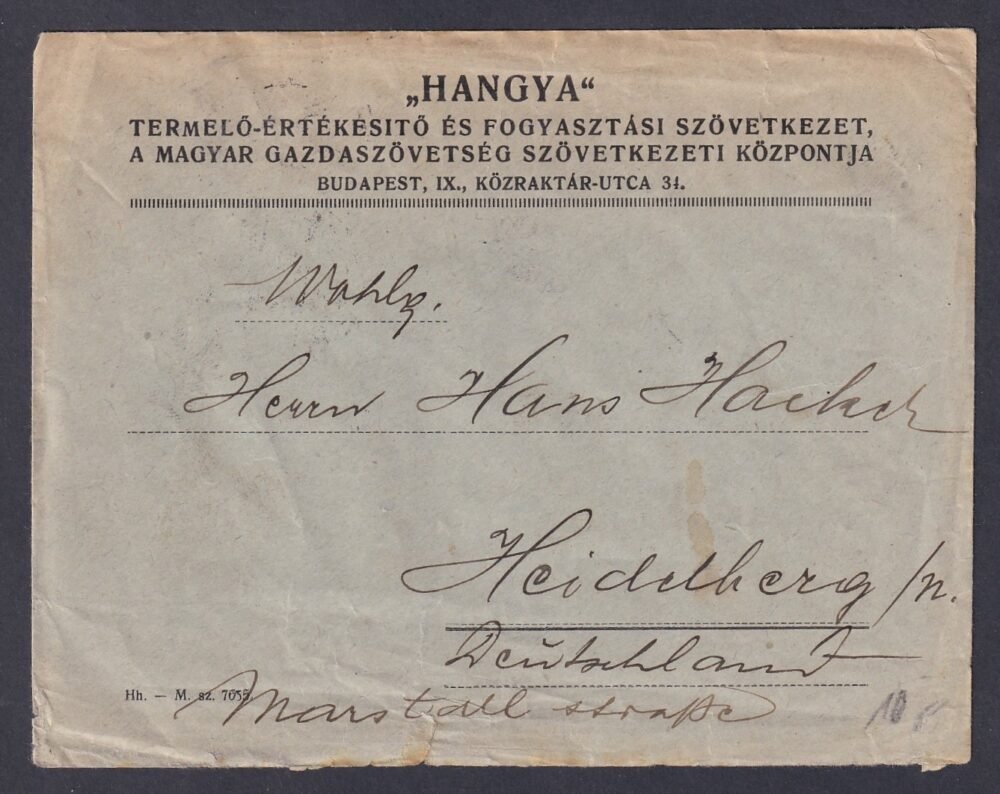 „HANGYA“
TERMELŐ-ÉRTÉKESITŐ ÉS FOGYASZTÁSI SZÖVETKEZET,
A MAGYAR GAZDASZÖVETSÉG SZÖVETKEZETI KÖZPONTJA
BUDAPEST, IX., KÖZRAKTÁR-UTCA 34.
Wohlg.
Herrn Hans
Heidelberg /n.
Deutschland
Hh. — M. sz. 7635.
Marstall straße
10